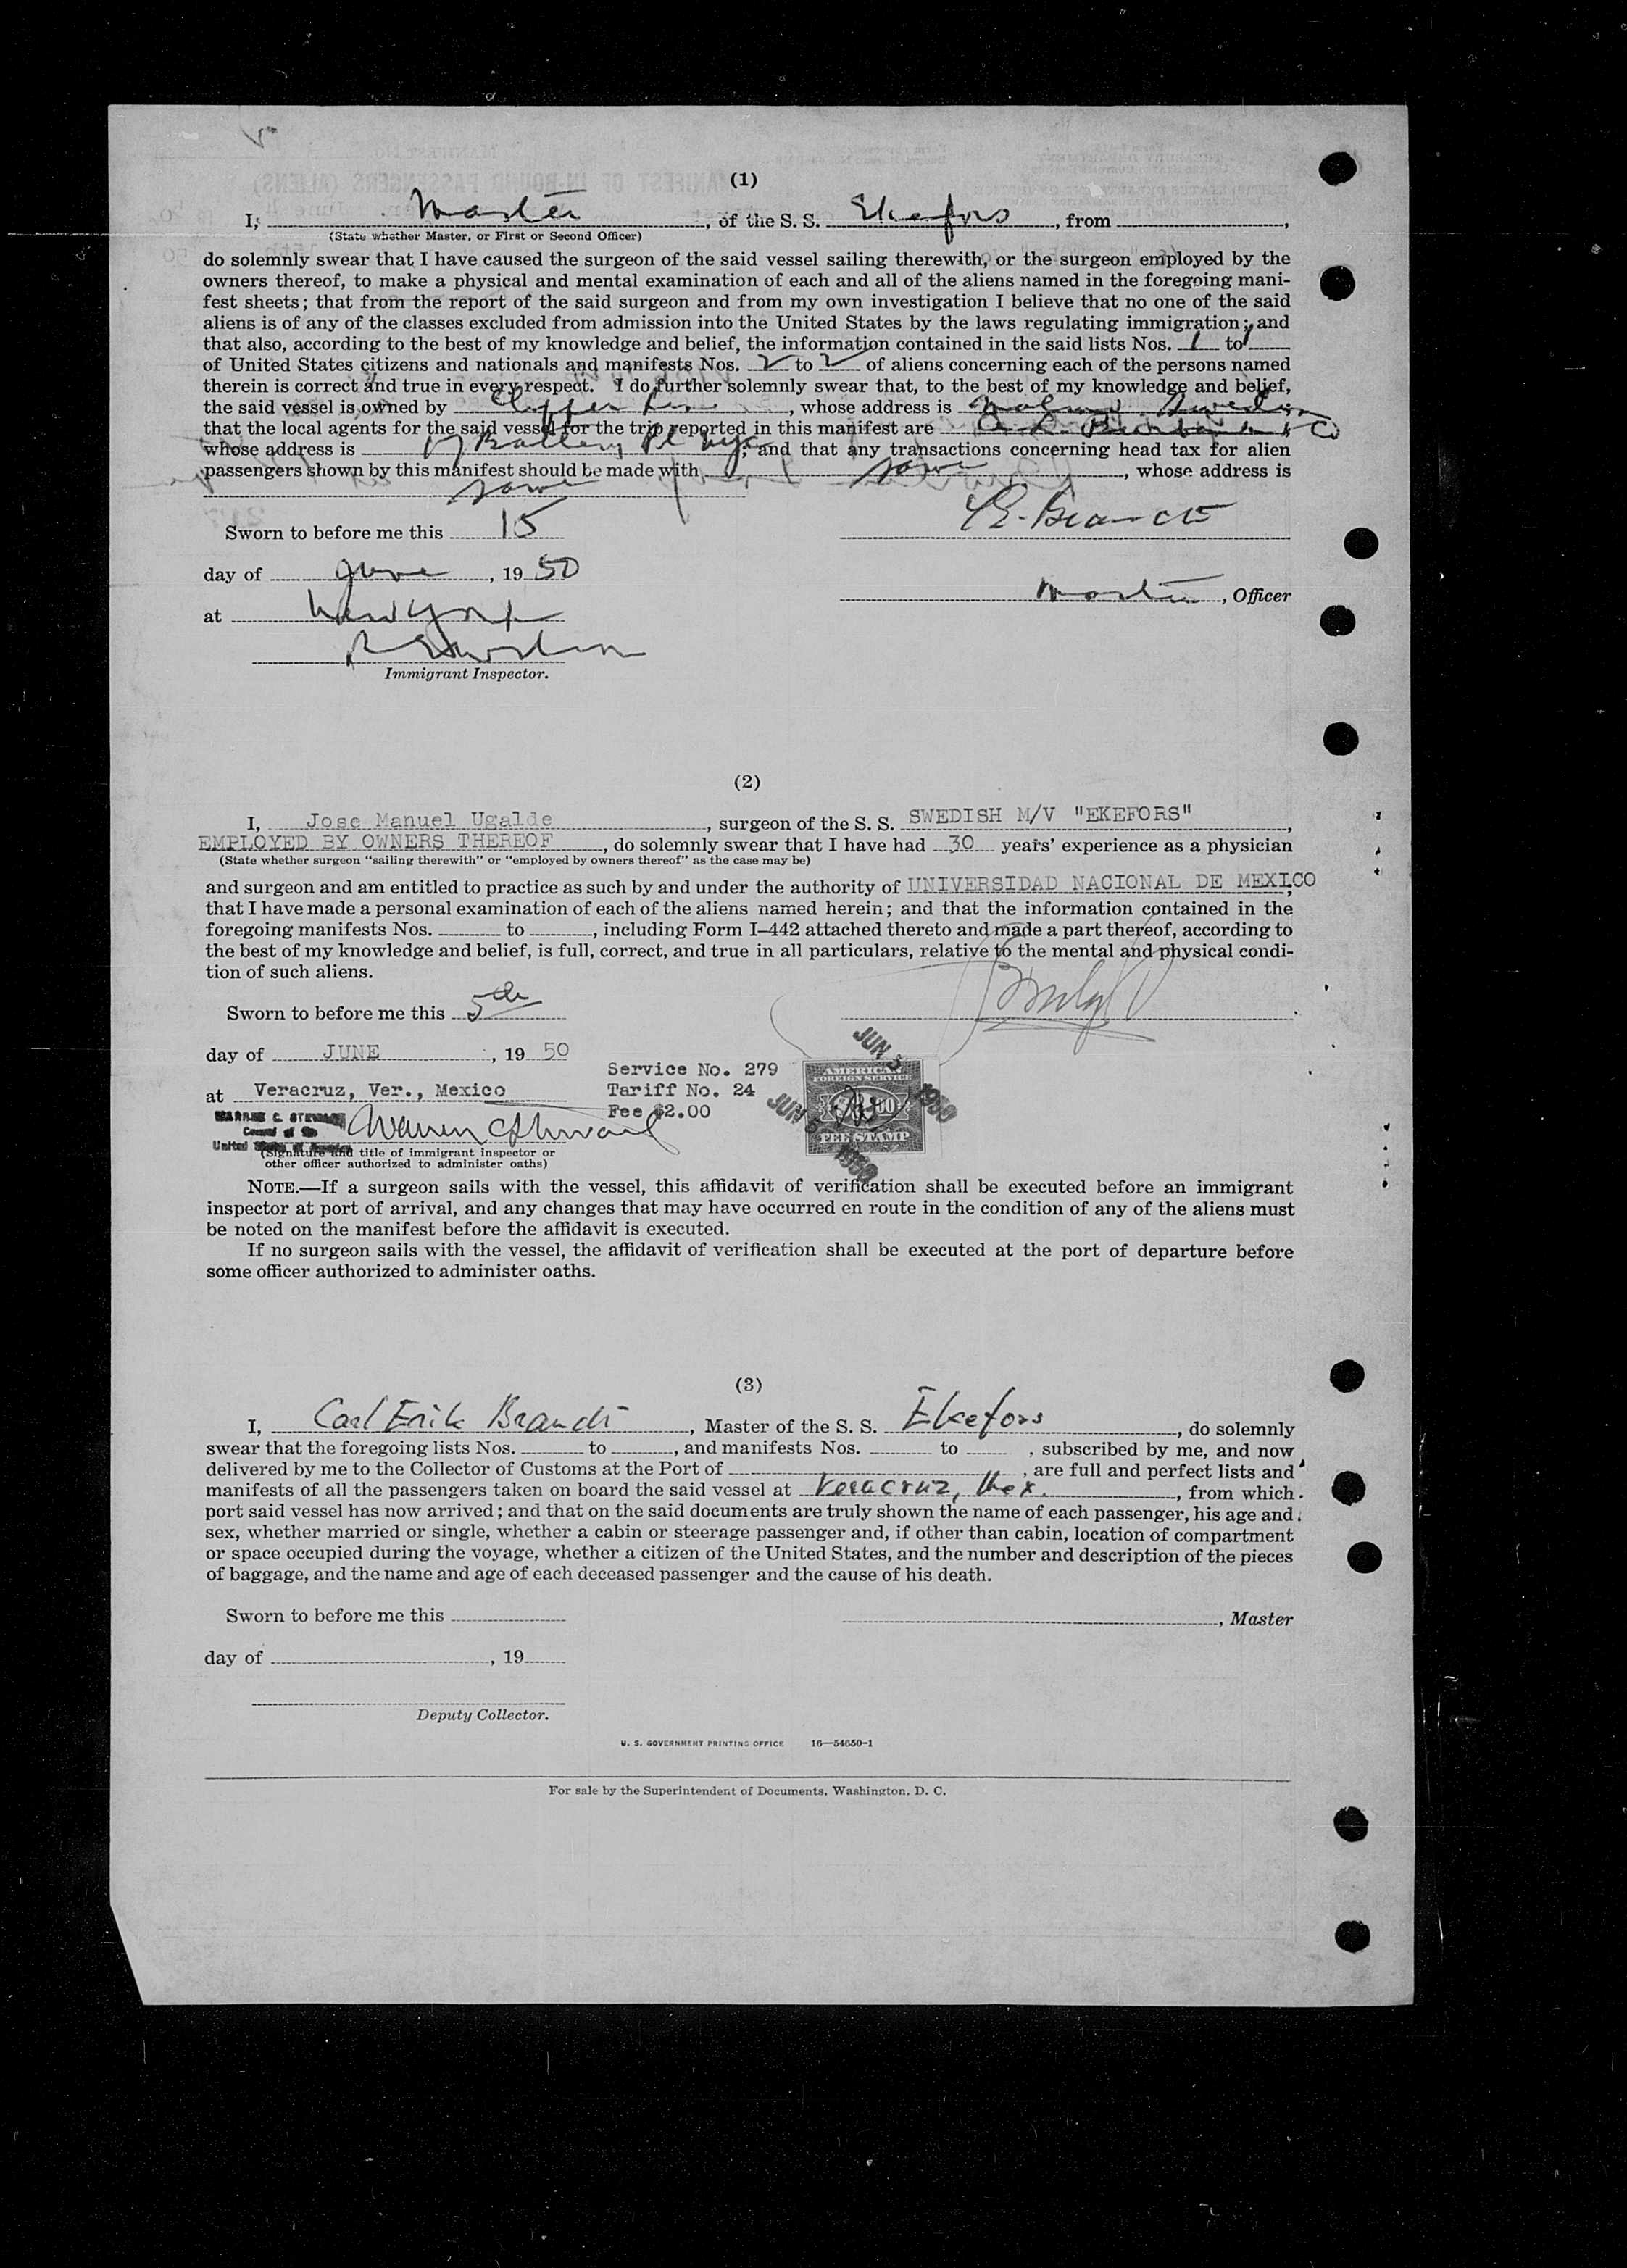 (1)
I, Master, of the S. S. Ekefors, from
(State whether Master, or First or Second Officer)
do solemnly swear that I have caused the surgeon of the said vessel sailing therewith, or the surgeon employed by the
owners thereof, to make a physical and mental examination of each and all of the aliens named in the foregoing mani-
fest sheets; that from the report of the said surgeon and from my own investigation I believe that no one of the said
aliens is of any of the classes excluded from admission into the United States by the laws regulating immigration; and
that also, according to the best of my knowledge and belief, the information contained in the said lists Nos. 1 to 1
of United States citizens and nationals and manifests Nos. 2 to 2 of aliens concerning each of the persons named
therein is correct and true in every respect. I do further solemnly swear that, to the best of my knowledge and belief,
the said vessel is owned by Clipper Line, whose address is Malmo, Sweden
that the local agents for the said vessel for the trip reported in this manifest are & Co
whose address is 17 Battery Pl NYC; and that any transactions concerning head tax for alien
passengers shown by this manifest should be made with same, whose address is
same
Sworn to before me this 15
day of June, 19 50
Master, Officer
at New York
Immigrant Inspector.
(2)
I, Jose Manuel Ugalde, surgeon of the S. S. SWEDISH M/V "EKEFORS",
EMPLOYED BY OWNERS THEREOF, do solemnly swear that I have had 30 years' experience as a physician
(State whether surgeon "sailing therewith" or "employed by owners thereof" as the case may be)
and surgeon and am entitled to practice as such by and under the authority of UNIVERSIDAD NACIONAL DE MEXICO;
that I have made a personal examination of each of the aliens named herein; and that the information contained in the
foregoing manifests Nos. to , including Form I–442 attached thereto and made a part thereof, according to
the best of my knowledge and belief, is full, correct, and true in all particulars, relative to the mental and physical condi-
tion of such aliens.
Sworn to before me this 5th
day of JUNE, 19 50
at Veracruz, Ver., Mexico
Service No. 279
Tariff No. 24
Fee $2.00
JUN 5 1950
JUN 5 1950
AMERICAN
FOREIGN SERVICE
FEE STAMP
WARREN C. STEWART
Consul of the
United States of America
Warren C Stewart
(Signature and title of immigrant inspector or
other officer authorized to administer oaths)
NOTE.—If a surgeon sails with the vessel, this affidavit of verification shall be executed before an immigrant
inspector at port of arrival, and any changes that may have occurred en route in the condition of any of the aliens must
be noted on the manifest before the affidavit is executed.
If no surgeon sails with the vessel, the affidavit of verification shall be executed at the port of departure before
some officer authorized to administer oaths.
(3)
I, Carl Erik Brandt, Master of the S. S. Ekefors, do solemnly
swear that the foregoing lists Nos. to , and manifests Nos. to , subscribed by me, and now
delivered by me to the Collector of Customs at the Port of , are full and perfect lists and
manifests of all the passengers taken on board the said vessel at Veracruz, Mex., from which
port said vessel has now arrived; and that on the said documents are truly shown the name of each passenger, his age and
sex, whether married or single, whether a cabin or steerage passenger and, if other than cabin, location of compartment
or space occupied during the voyage, whether a citizen of the United States, and the number and description of the pieces
of baggage, and the name and age of each deceased passenger and the cause of his death.
Sworn to before me this
, Master
day of , 19
Deputy Collector.
U. S. GOVERNMENT PRINTING OFFICE 16—54650-1
For sale by the Superintendent of Documents, Washington, D. C.